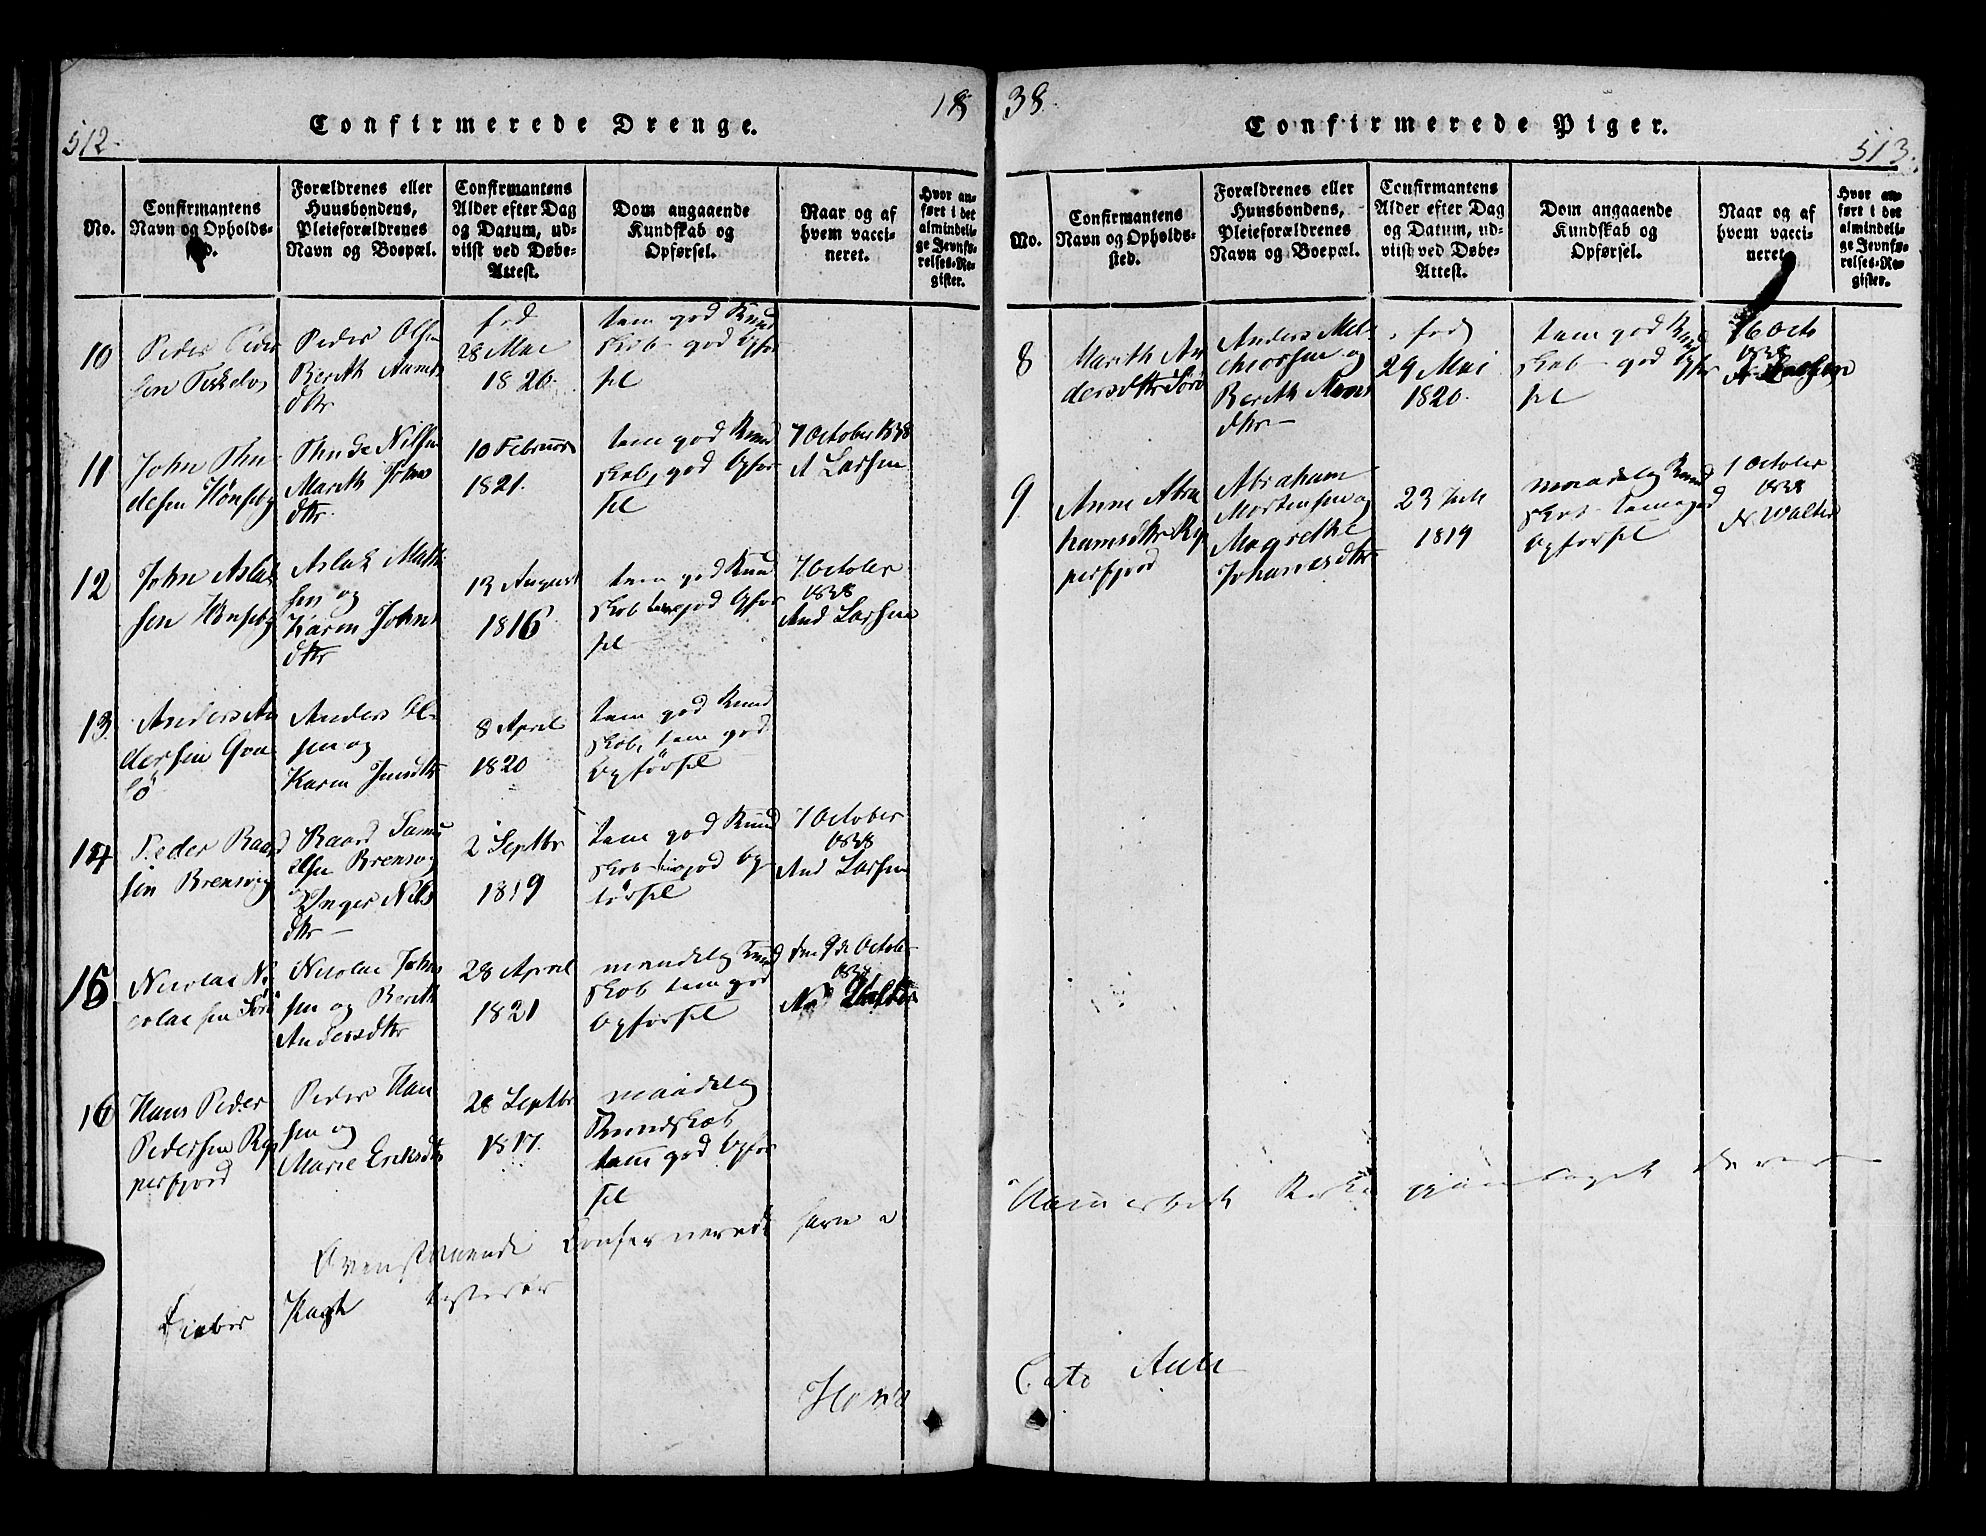 512.
18
Confirmerede Drenge.
No.
Confirmantens
Navn og Opholds-
Forældrenes eller
Huusbondens,
Pleieforældrenes
Navn og Boepæl.
Confirmantens
Alder efter Dag
og Datum, ud-
viist ved Døbe-
Attest.
Dom angaaende
Kundskab og
Opførsel.
Naar og af
hvem vacci-
neret.
Hvor an-
ført i det
almindeli-
ge Jevnfø-
relses-Re-
gister.
10
Peder Peder
sen
Peder Olsen
Berith
dtr
fød
28 Mai
1820.
tem god Kund
skab god Opfør
sel
11
John Thu-
desen Hønseby
Thude Nilsen
Marith Johns
dtr.
10 Februar
1821.
tem god Kund
skab, god Opfør
sel
7 October 1838
A Larsen
12
John Aslak
sen Hønseby
Aslak Math
sen og
Karen Johns
dtr
13 August
1816
tem god Kund
skab tem god Opfør
sel
7 October
1838
And Larsen
13.
Anders An
dersen
Anders Ol-
sen og
Karen
8 April
1820
tem god Kund
skab, tem god
Opførsel
14
Peder Baard
sen Brensvig
Baard Samu
elsen Brensvog
og
Inger Nils
dtr
2 Septbr
1819
tem god Kund
skab tem god Op-
førsel
7 October
1838
And Larsen
15
Nicolai Ni
colaisen
Nicolai Johns
sen og Berith
Andersdtr
28 April
1821
maadelig Kund
skab tem god
Opførsel
den 9de October
1838
16
Hans Peder
Pedersen Rep
perfjord
Peder Han
sen og
Marie Eriksdtr
28 Septbr
1817.
maadelig
Kundskab
tem god Opfør
sel
Ovenstaaende Confirmerede
38.
Confirmerede Piger.
513.
No.
Confirmantens
Navn og Opholds-
sted.
Forældrenes eller
Huusbondens,
Pleieforældrenes
Navn og Boepæl.
Confirmantens
Alder efter Dag
og Datum, ud-
viist ved Døbe-
Attest.
Dom angaaende
Kundskab og
Opførsel.
Naar og af
hvem vacci-
neret.
Hvor an-
ført i det
almindeli-
ge Jevnfø-
relses-Re-
gister.
8
Marith An
dersdtr
Anders Mel
chiorsen og
Berith
dtr
fød
29 Mai
1820.
tem god Kund
skab god Opfør
sel
16 Octo
1838
9.
Anne Abra
hamsdtr Rep
perfjord
Abraham
Mortensen og
Magrethe
Johannesdtr
23 Juli
1819
maadelig Kund
skab tem god
Opførsel
1 October
1838
N Walter
Hammerfest Kirke